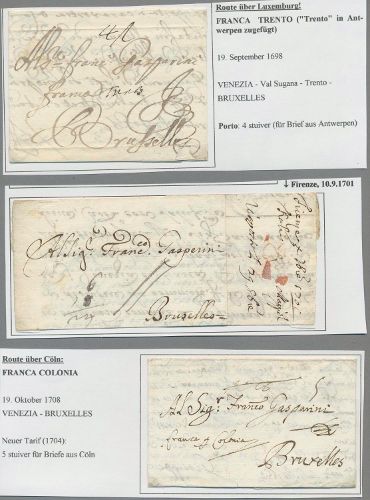 Route über Luxemburg!
FRANCA TRENTO ("Trento" in Ant-
werpen zugefügt)
19. September 1698
VENEZIA - Val Sugana - Trento -
BRUXELLES
Porto: 4 stuiver (für Brief aus Antwerpen)
franc Gasparini
franco
Brusselles
↓ Firenze, 10.9.1701
Al Sigr. Franco. Gasperini
Bruxelles
Route über Cöln:
FRANCA COLONIA
19. Oktober 1708
VENEZIA - BRUXELLES
Neuer Tarif (1704):
5 stuiver für Briefe aus Cöln
Al Sigr. Franco Gasparini
franca p Colonia
Bruxelles